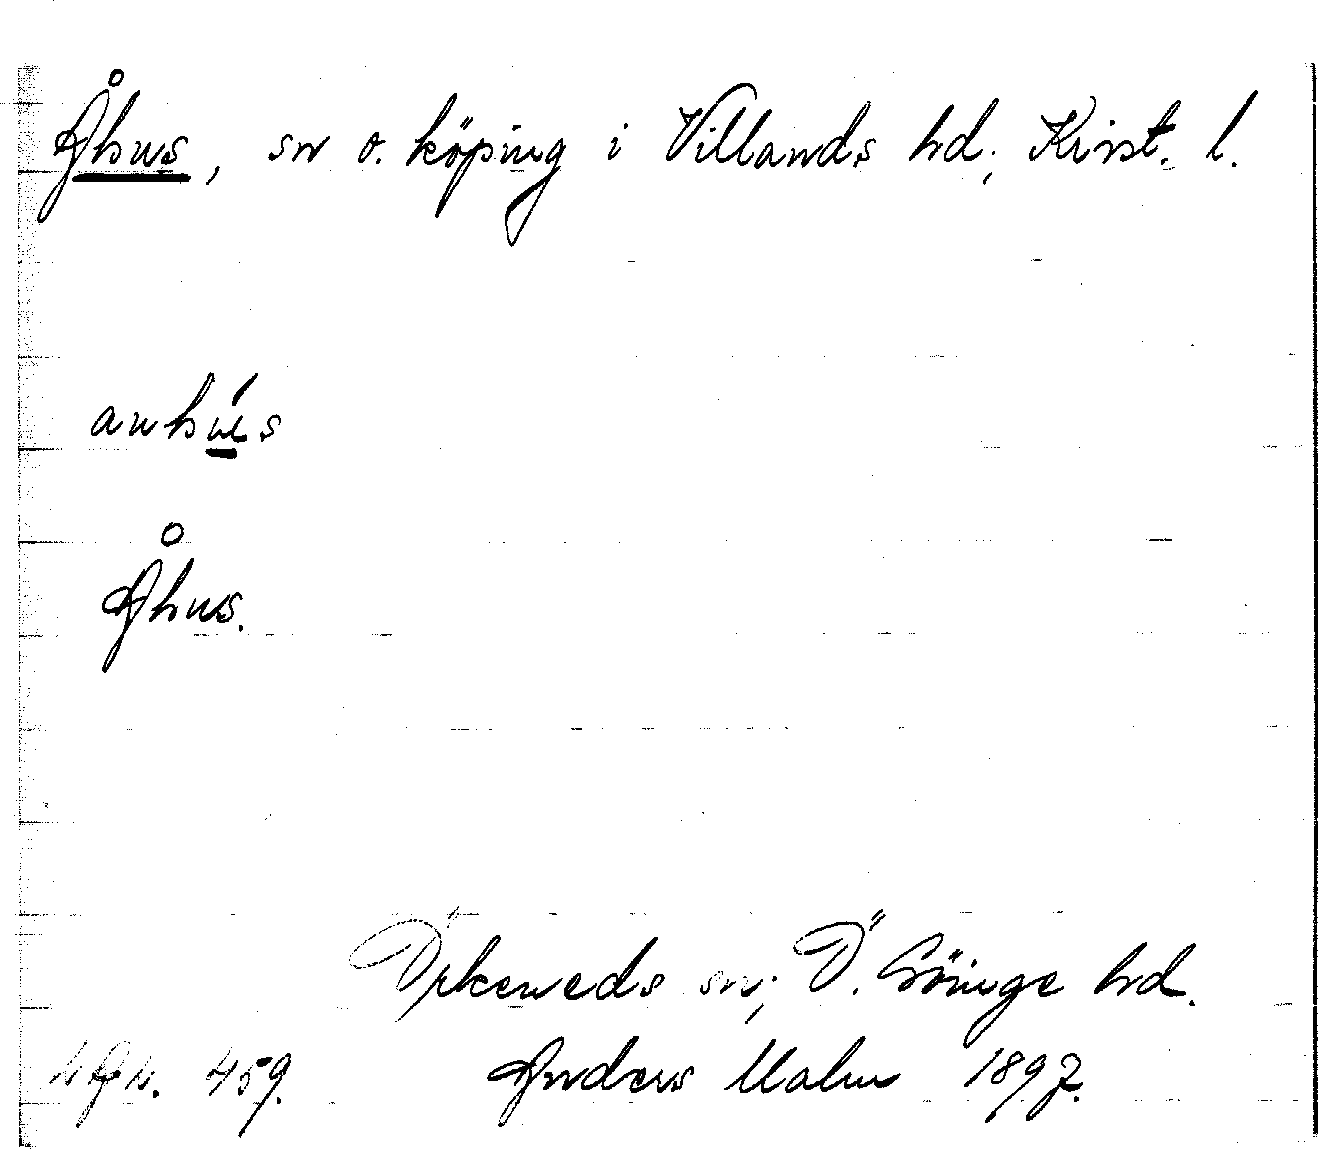 Åhus, sn o. köping i Villands hd; Krist. l.
auhús
Åhus.
Örkeneds sn; Ö. Göinge hd.
459. Anders Malm 1897.